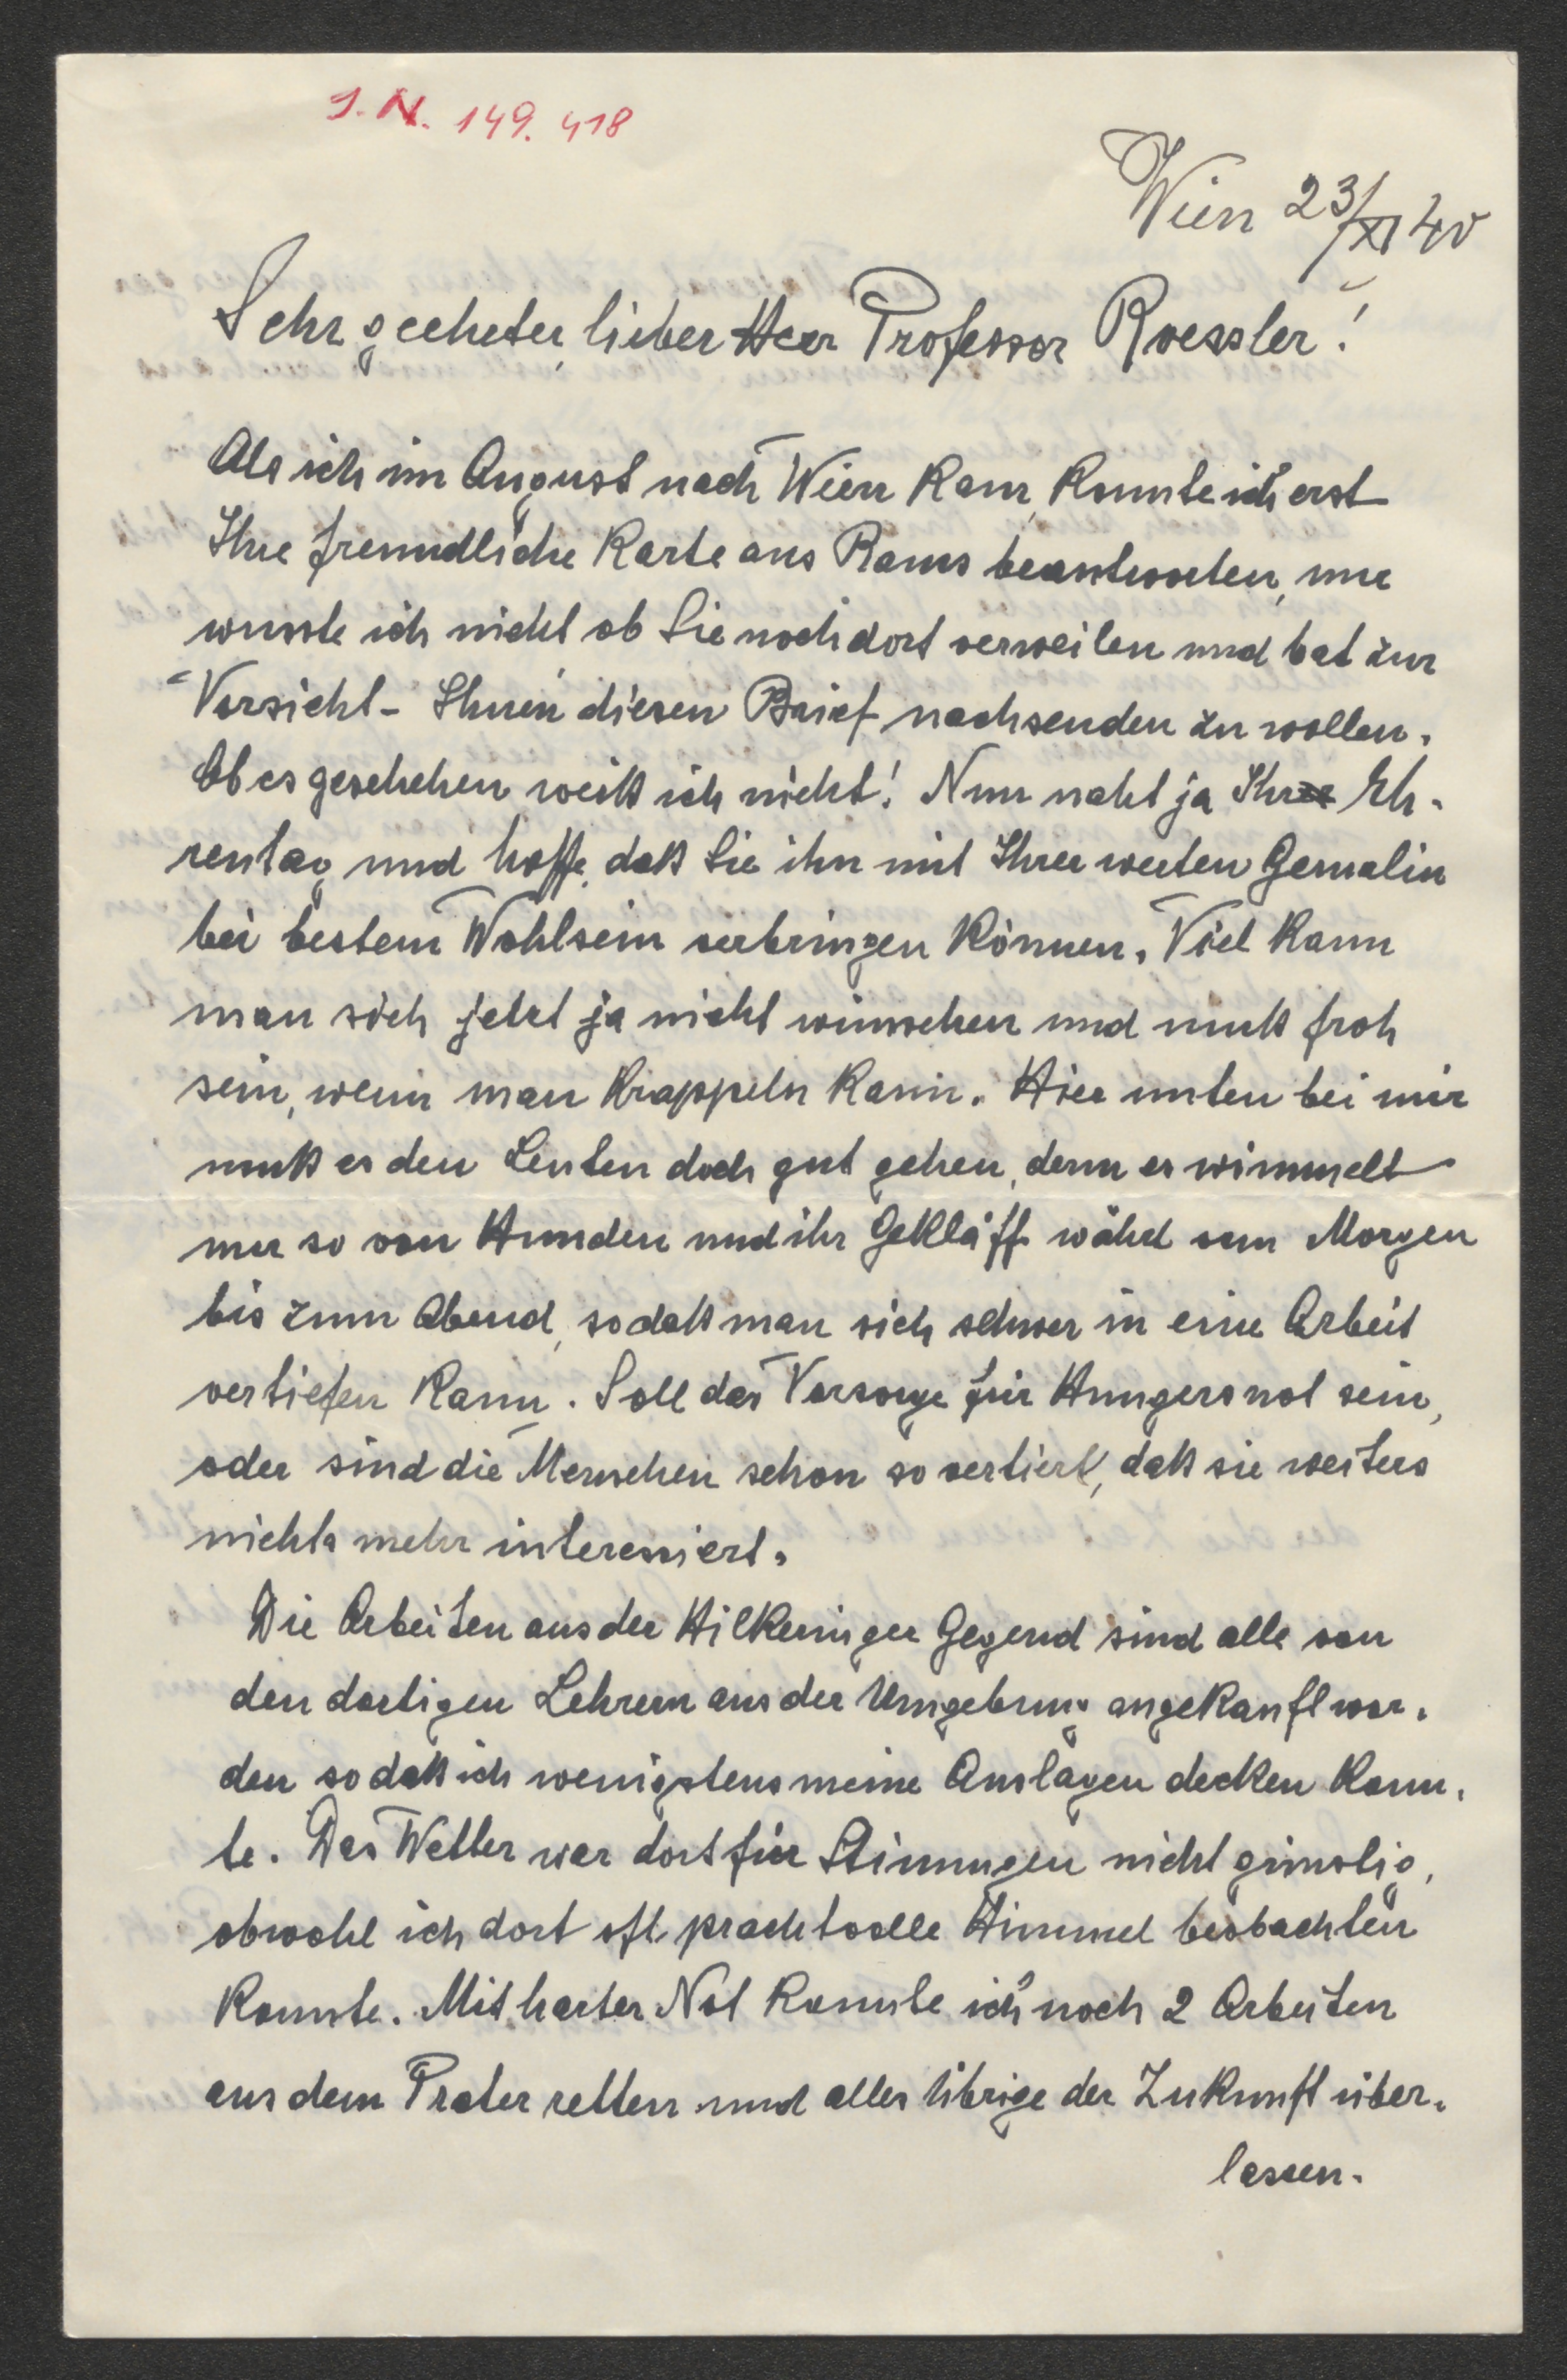 I. N. 149.418
Wien 23/XI 40
Sehr geehrter, lieber Herr Professor Roessler!
Als ich im August nach Wien kam, konnte ich erst
Ihre freundliche Karte aus Rams beantworten, nur
wusste ich nicht ob Sie noch dort verweilen und bat zur
Vorsicht - Ihnen diesen Brief nachsenden zu wollen.
Ob es geschehen weiß ich nicht! Nun naht ja Ihr Eh-
rentag und hoffe, daß Sie ihn mit Ihrer werten Gemalin
bei bestem Wohlsein verbringen können. Viel kann
man sich jetzt ja nicht wünschen und muß froh
sein, wenn man krappeln kann. Hier unten bei mir
muß es den Leuten doch gut gehen, denn es wimmelt
nur so von Hunden und ihr Gekläff währt vom Morgen
bis zum Abend, sodaß man sich schwer in eine Arbeit
vertiefen kann. Soll das Vorsorge für Hungersnot sein,
oder sind die Menschen schon so vertiert, daß sie weiters
nichts mehr interessiert.
Die Arbeiten aus der Hilkeringer Gegend sind alle von
den dortigen Lehrern aus der Umgebung angekauft wor-
den so daß ich wenigstens meine Auslagen decken konn-
te. Das Wetter war dort für Stimmungen nicht günstig,
obwohl ich dort oft prachtvolle Himmel beobachten
konnte. Mit harter Not konnte ich noch 2 Arbeiten
aus dem Prater retten und alles Übrige der Zukunft über-
lassen.